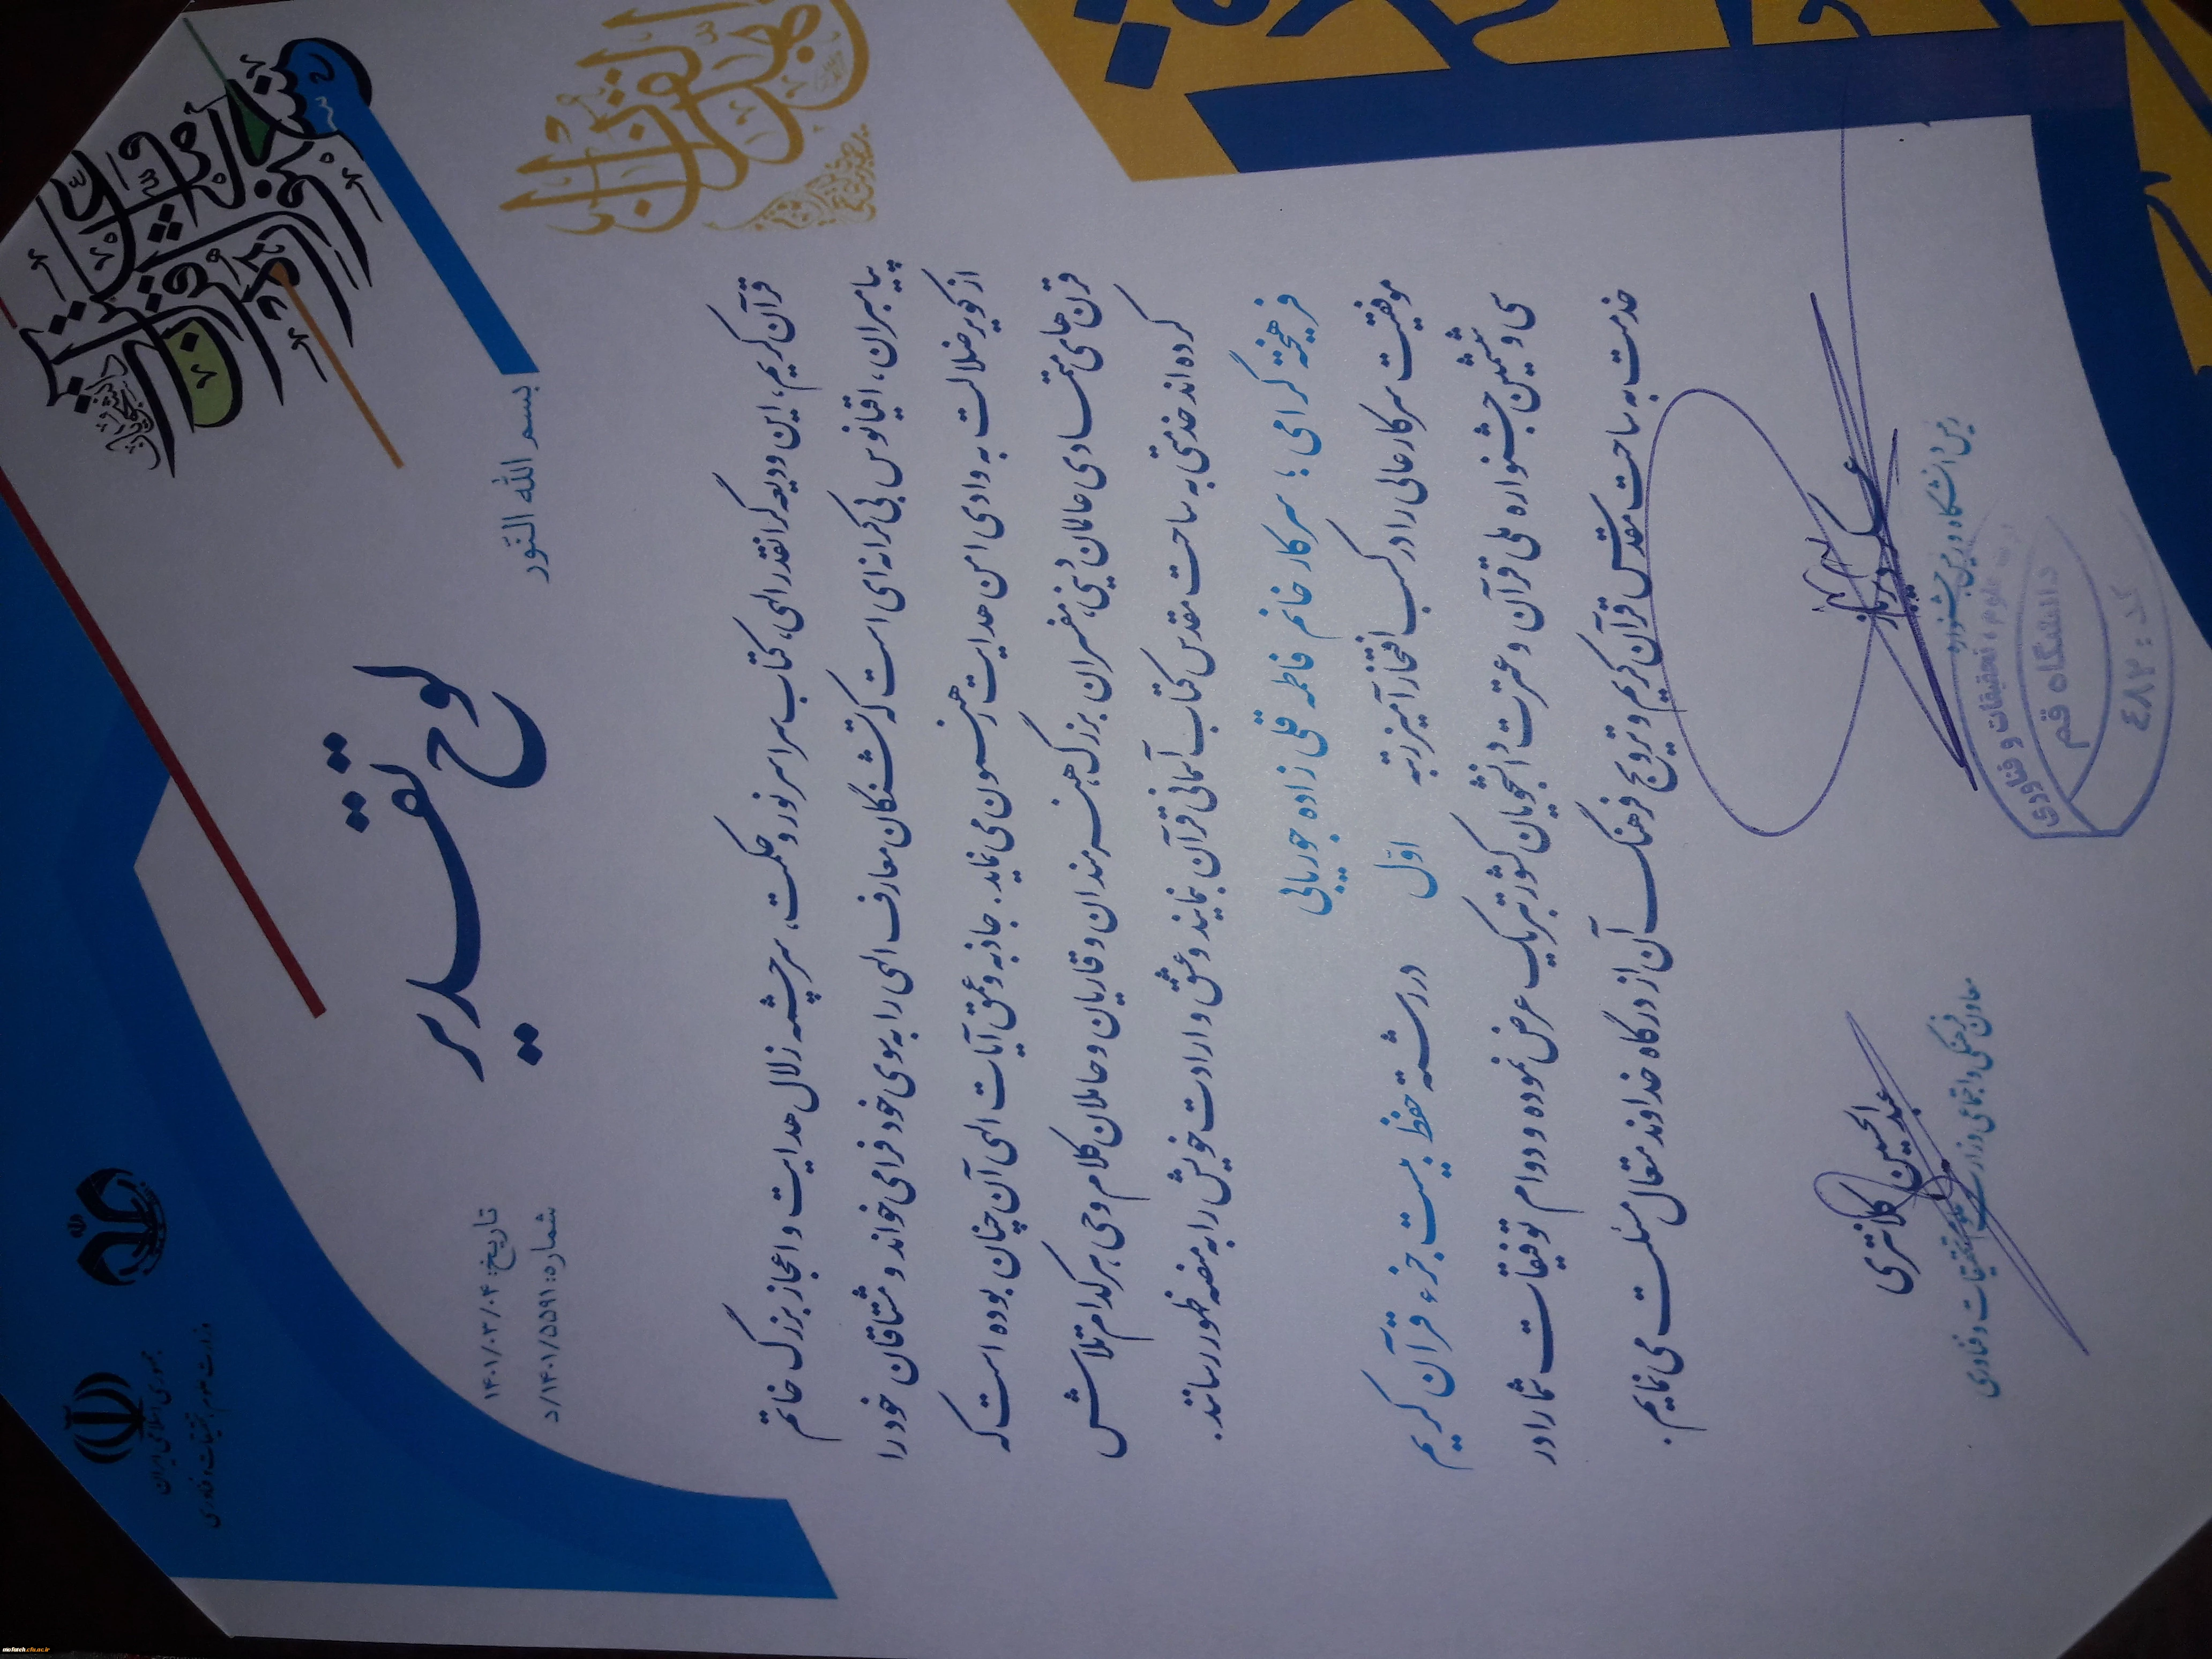 جمهوری اسلامی ایران
وزارت علوم، تحقیقات و فناوری
تاریخ: ۱۴۰۱/۰۳/۰۴
شماره: ۱۴۰۱/۵۵۹۱/د
بسم الله النّور
لوح تقدیر
قرآن کریم، این ودیعه گرانقدر الهی، کتاب سراسر نور و حکمت، سرچشمه زلال هدایت و اعجاز بزرگ خاتم
پیامبران، اقیانوس بی کرانه ای است که تشنگان معارف الهی را به سوی خود فرا می خواند و مشتاقان خود را
از کویر ضلالت به وادی امن هدایت رهنمون می نماید. جاذبه و عمق آیات الهی آن چنان بوده است که
قرن های متمادی عالمان دینی، مفسران بزرگ، هنرمندان و قاریان و حاملان کلام وحی هر کدام تلاش
کرده اند خدمتی به ساحت مقدس کتاب آسمانی قرآن بنمایند و عشق و ارادت خویش را به منصه ظهور رسانند.
فرهیخته گرامی؛ سرکار خانم فاطمه قلی زاده جورپایی
موفقیت سرکارعالی را در کسب افتخارآمیز رتبه اوّل در رشته حفظ بیست جزء قرآن کریم
سی و ششمین جشنواره ملی قرآن و عترت دانشجویان کشور تبریک عرض نموده و دوام توفیقات شما را در
خدمت به ساحت مقدس قرآن کریم و ترویج فرهنگ آن از درگاه خداوند متعال مسئلت می نمایم.
عسکر دیرباز
رئیس دانشگاه و دبیر جشنواره
عبدالحسین کلانتری
معاون فرهنگی و اجتماعی وزارت علوم، تحقیقات و فناوری
علوم، تحقیقات و فناوری
دانشگاه قم
کد: ٤٨٢
mofateh.cfu.ac.ir